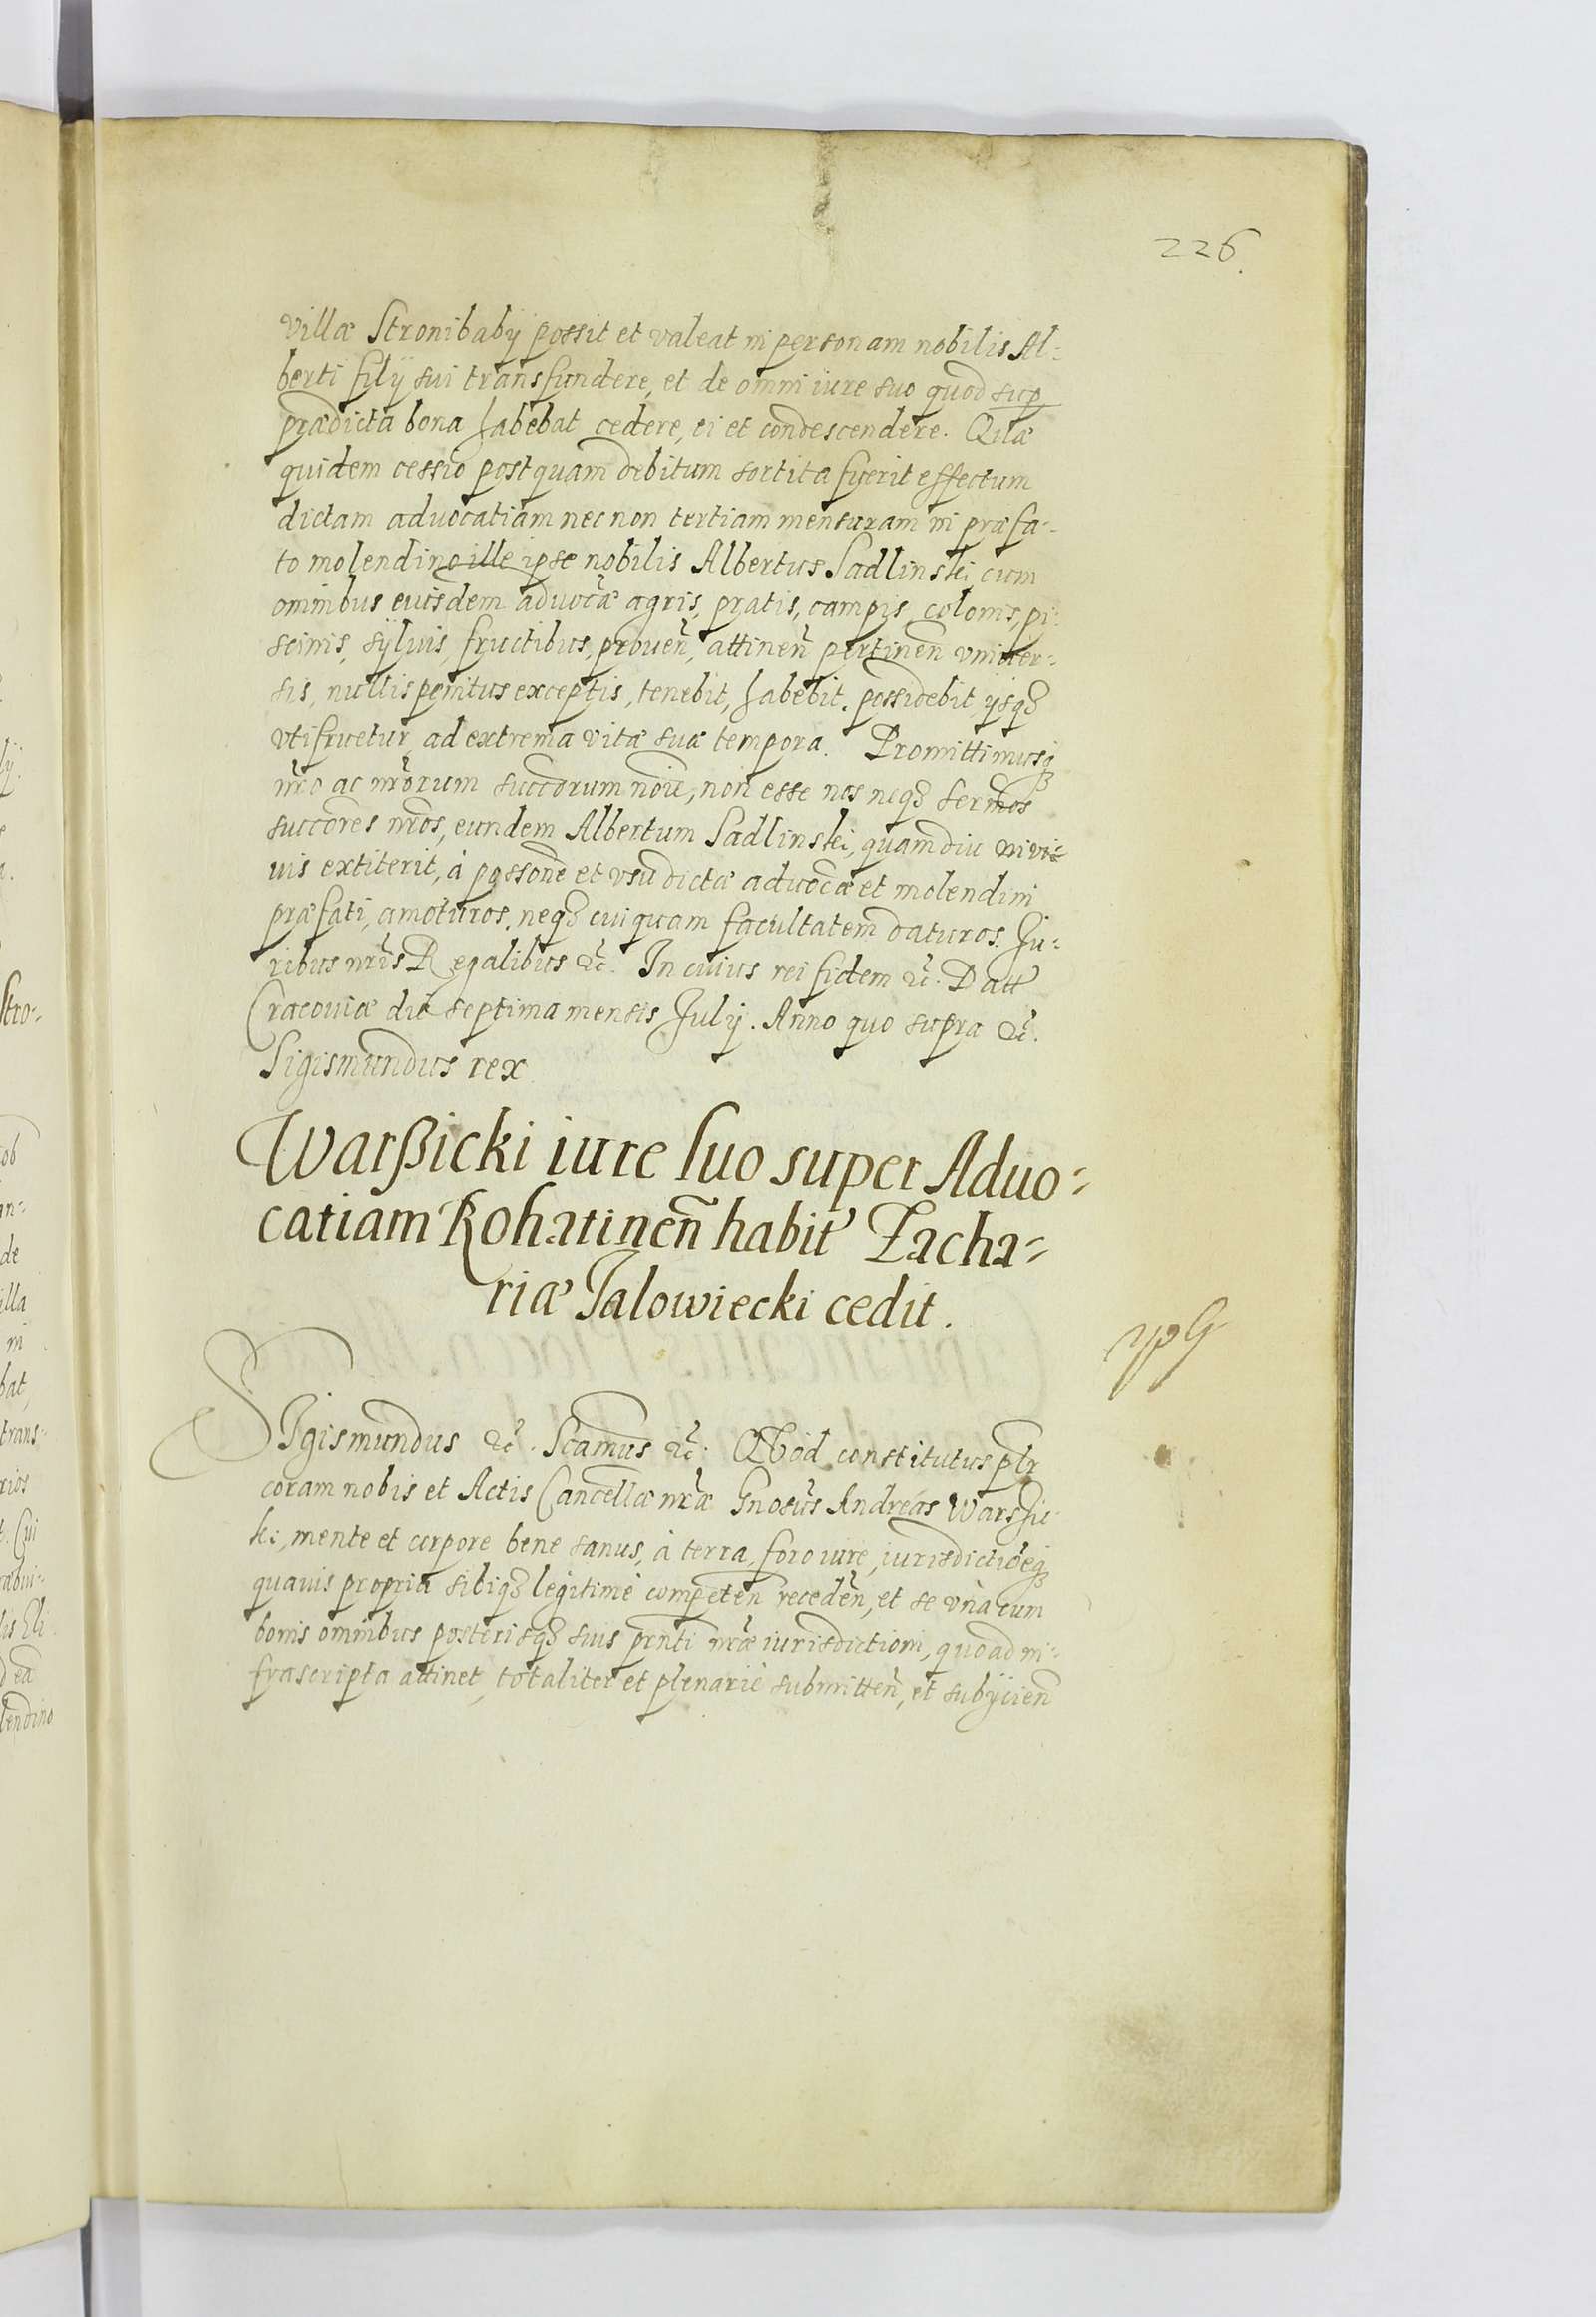 226.
villæ Stronibabÿ possit et valeat in personam nobilis Al-
berti filÿ sui transfundere, et de omni iure suo quod sup
prædicta bona habebat cedere, ei et condescendere. Quæ
quidem cessio postquam debitum sortita fuerit effectum
dictam advocatiam nec non tertiam mensuram in præfa-
to molendino ille ipse nobilis Albertus Sadlinski, cum
omnibus eiusdem advocãæ agris, pratis, campis, colonis, pi-
scinis, sÿlvis, fructibus, proueñ, attineñ pertineñ vniuer-
sis, nullis penitus exceptis, tenebit, habebit. possidebit ÿsq3
vtifruetur, ad extrema vitæ suæ tempora. Promittimusq3
nr̃o ac nr̃orum succorum noĩe, non esse nos neq3 sermos
succores nr̃os, eundem Albertum Sadlinski, quamdiu in vi-
uis extiterit, à possone et vsu dictæ advocæ et molendini
præfati, amoturos. neq3 cuiquam facultatem daturos. Ju-
ribus nr̃is Regalibus &c̃. In cuius rei fidem &c̃. Datt
Cracouiæ die septima mensis Julÿ. Anno quo supra &c̃.
Sigismundus rex
Warßicki iure suo super Aduo-
catiam Rohatineñ habit' Zacha-
riæ Jalowiecki cedit.
SIgismundus &c̃. Scamus &c̃. QVod constitutus pltr
coram nobis et Actis Cancellæ nr̃æ Gnosus Andreas Warssic
ki, mente et corpore bene sanus, à terra, foro iure, iurisdictioeq3
quauis propria sibiq3 legitimè competeñ recedeñ, et se vnà cum
bonis omnibus posterisq3 suis prnti nr̃æ iurisdictioni, quoad in-
frascripta attinet, totaliter et plenariè submitteñ, et subÿcieñ